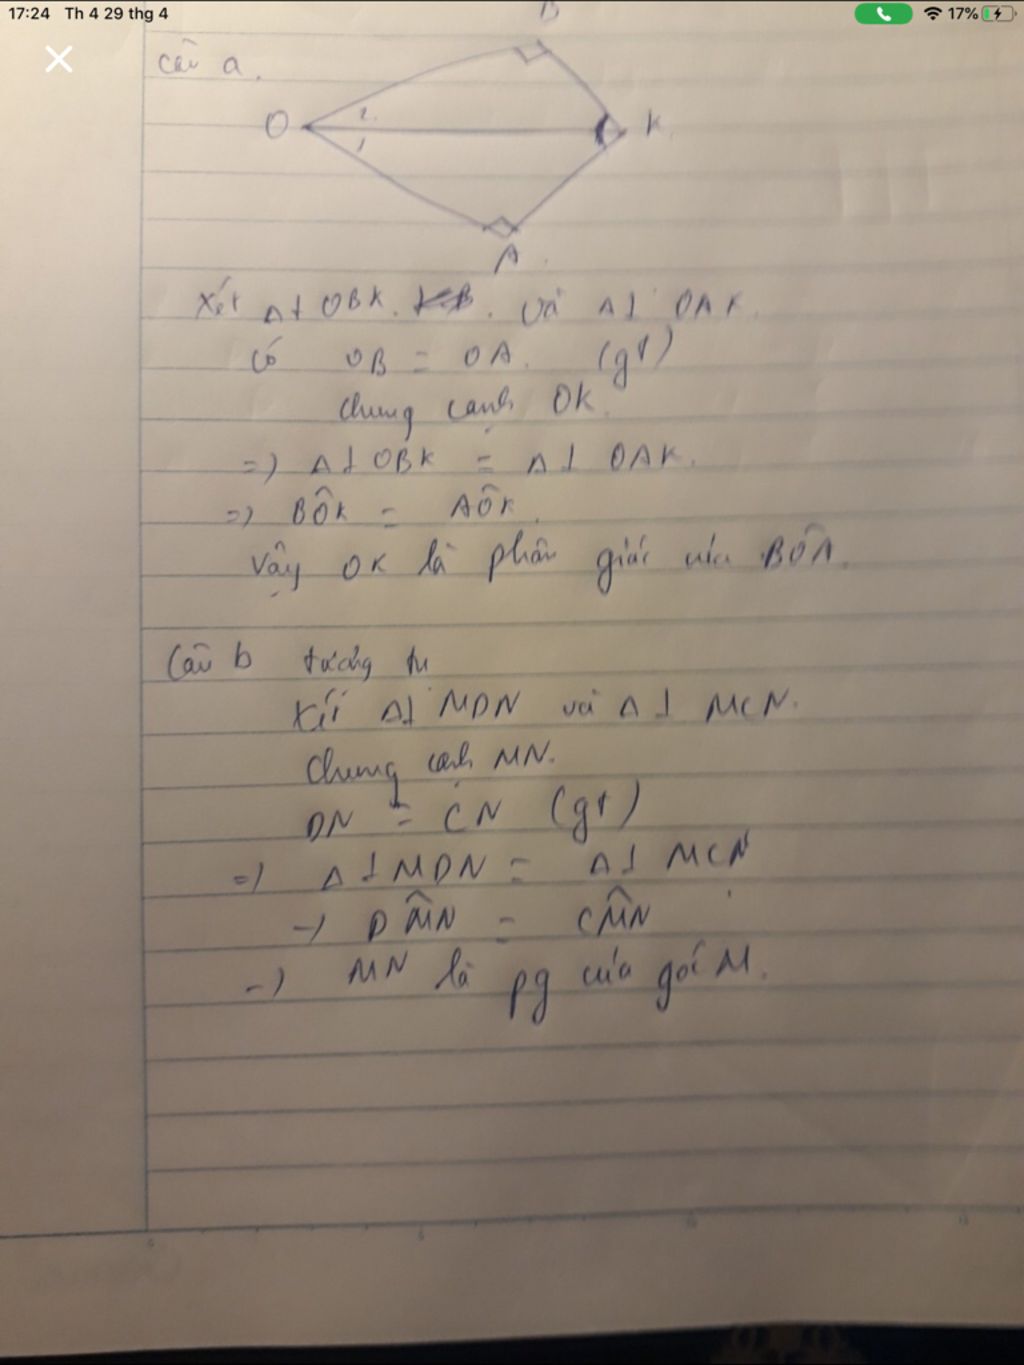 17:24 Th 4 29 thg 4 17%
B
Câu a.
O 2 K
1
A
Xét Δ⊥ OBK. và Δ⊥ OAK.
Có OB = OA. (gt)
Chung cạnh OK.
=) Δ⊥ OBK = Δ⊥ OAK.
=) BÔK = AÔK.
Vậy OK là phân giác của BÔA.
Câu b tương tự
Xét Δ⊥ MDN và Δ⊥ MCN.
Chung cạnh MN.
DN = CN (gt)
=) Δ⊥ MDN = Δ⊥ MCN
-) DM̂N = CM̂N
-) MN là pg của góc M.